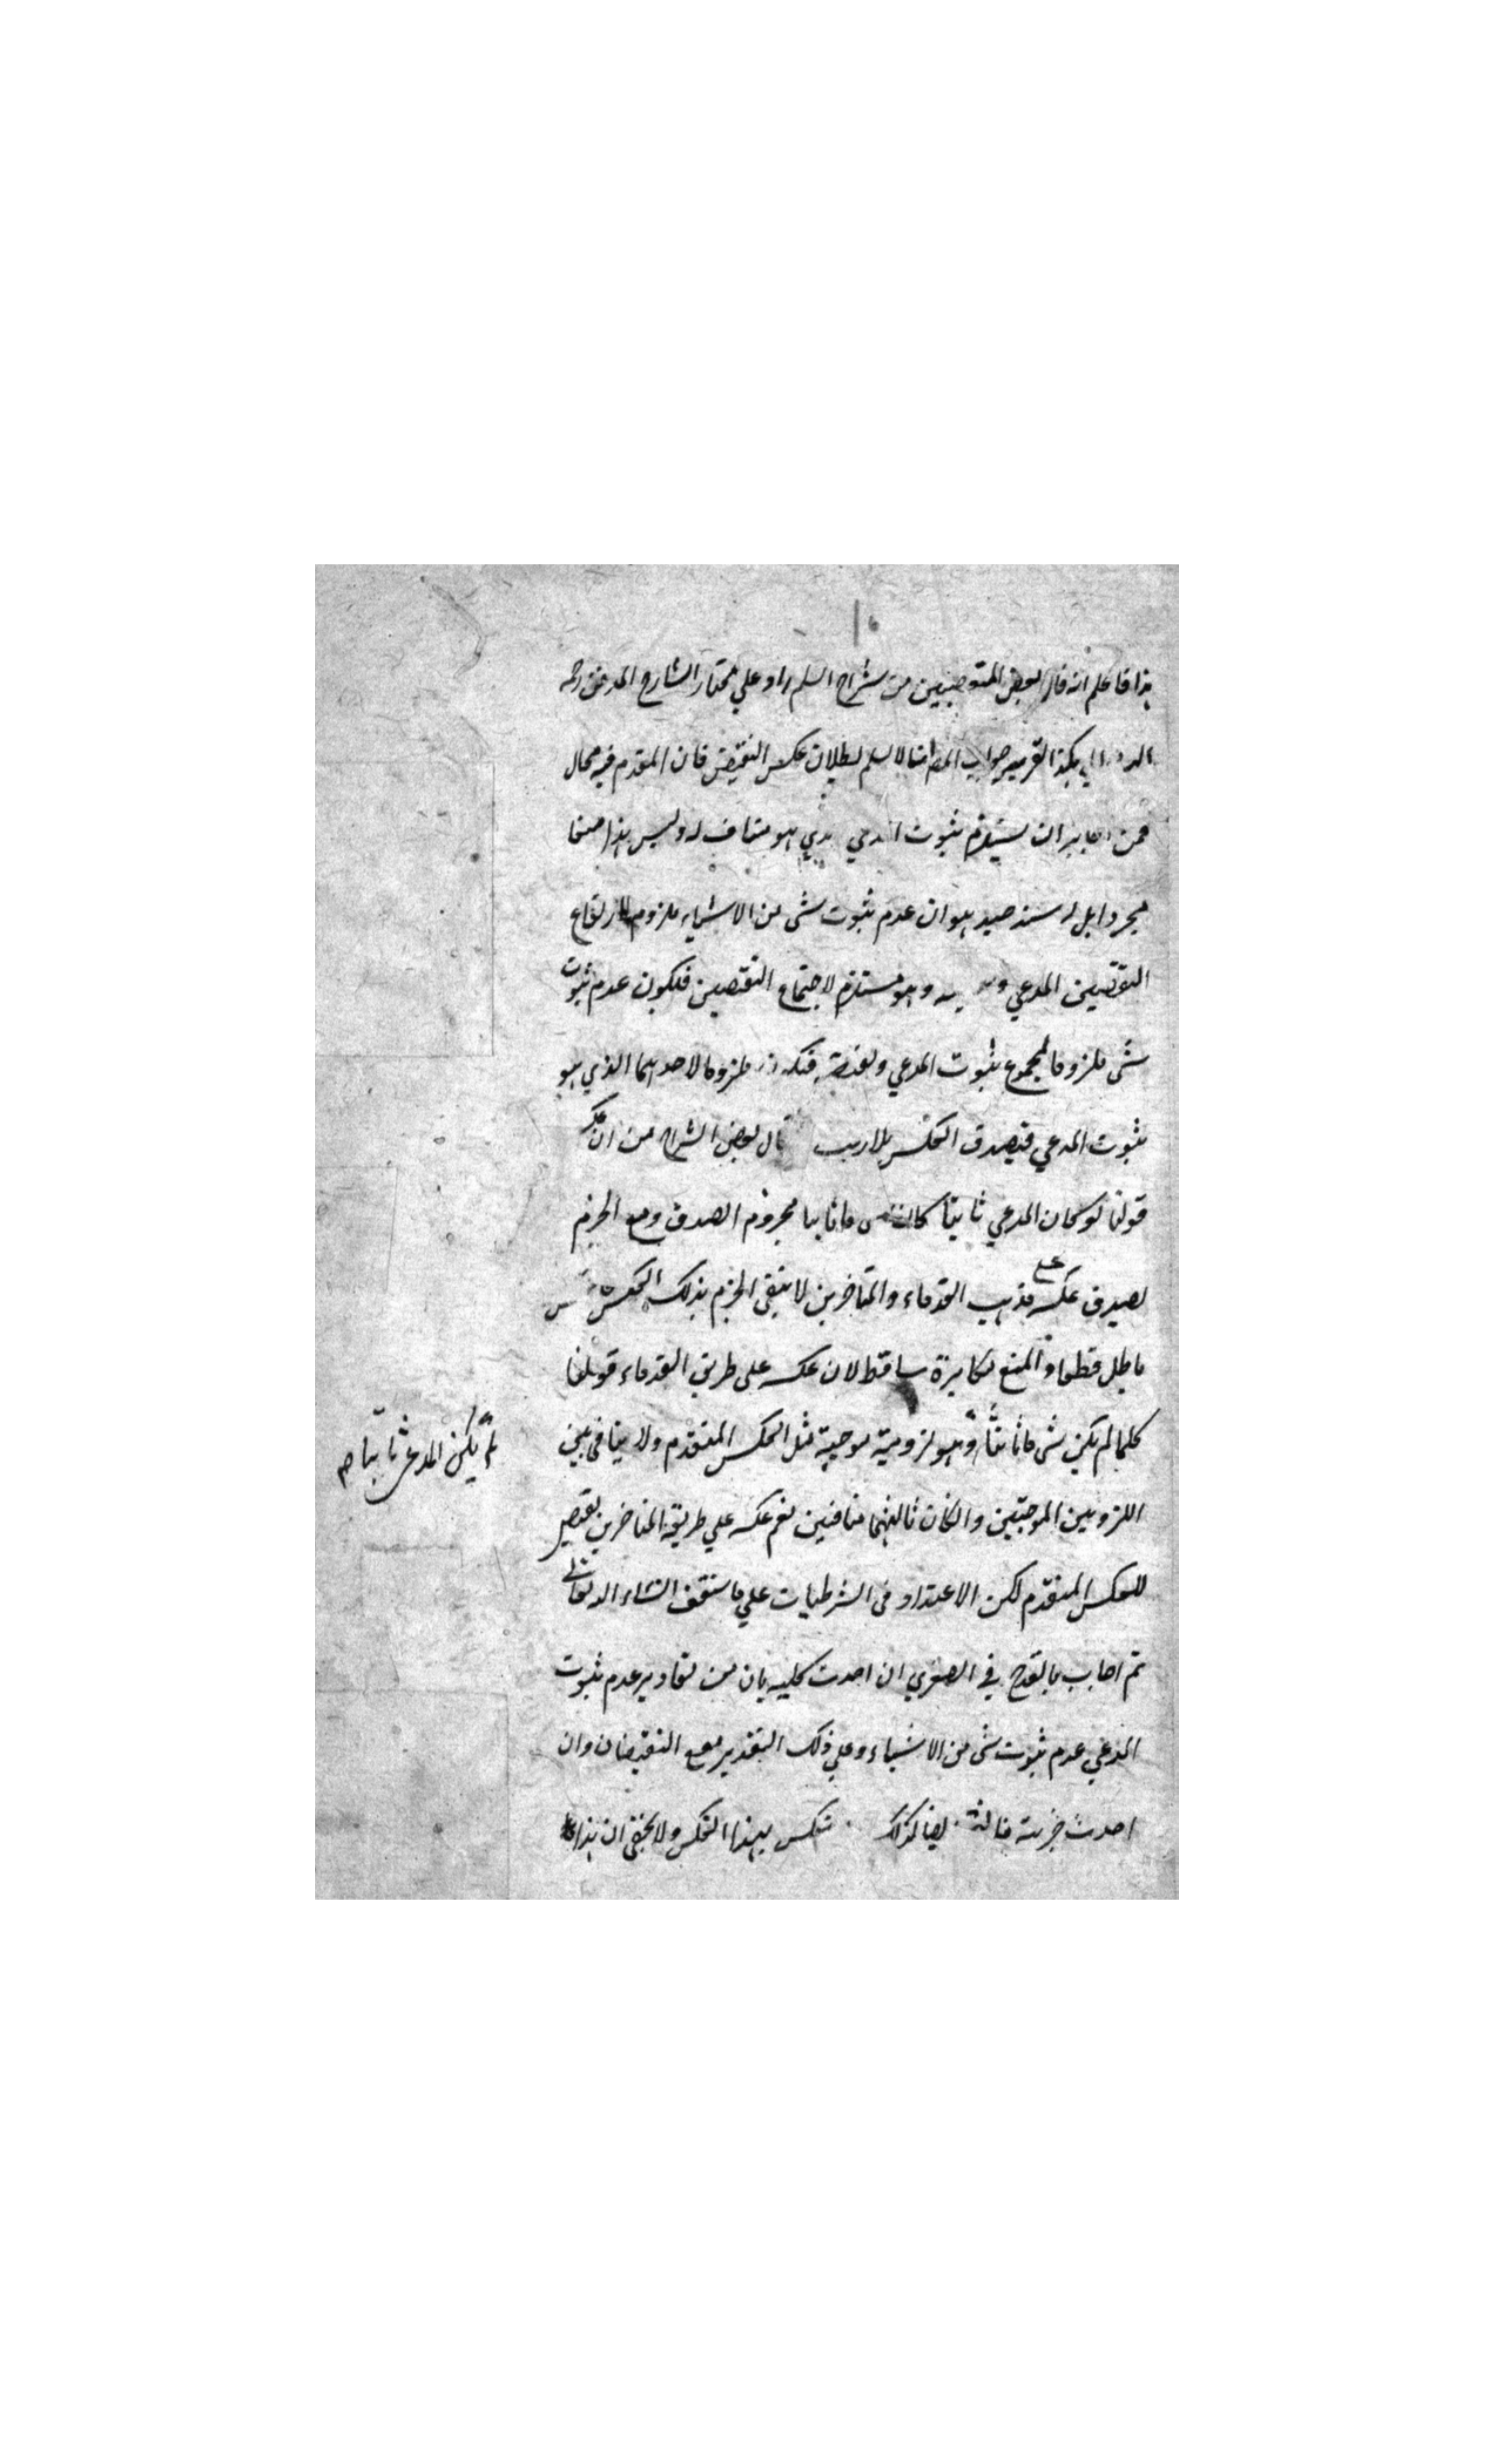 هذا فاعلم انه قال بعض المتوصبين من شراح السلم راد علي مختار الشارح
هكذا التقرير جواب المص انا لا نسلم بطلان عكس النقيض فان المقدم فيه محال
فمن ان يستلزم ثبوت المدعي الذي هو مناف له وليس هذا منعا
مجردا بل له سند هو ان عدم ثبوت شى من الاشياء ملزوم لارتفاع
النقيضين المدعي و وهو مستلزم لاجتماع النقيضين فلكون عدم ثبوت
شى ملزوما لمجموع ثبوت المدعي ونقيضه فيكون ملزوما لاحدهما الذي هو
ثبوت المدعي فيصدق العكس بلا ريب قال بعض الشراح من ان عكس
قولنا لو كان المدعي ثابتا كان شى ما ثابتا مجزوم الصدق ومع الجزم
لصدق عكسه على مذهب القدماء والمتاخرين لا يبقى الجزم بذلك العكس
باطل قطعا والمنع مكابرة ساقط لان عكسه على طريق القدماء قولنا
كلما لم يكن شى ما ثابتا وهو لزومية موجبة مثل العكس المتقدم ولا ينافى بين
لم يكن المدعى ثابتا صح
اللزوميين الموجبتين وان كان تالي‍هما منافيين نعم عكسه علي طريقة المتاخرين نقيض
للعكس المتقدم لكن الاعتداد فى الشرطيات علي ما ستقف انشاء الله تعالى
ثم اجاب بالقدح في الصغري ان اخذت كلية بان من تقادير عدم ثبوت
المدعي عدم ثبوت شى من الاشياء وعلي ذلك التقدير مع النقيضان وان
اخذت جزئية كذلك بهذا العكس ولا يخفى ان هذا